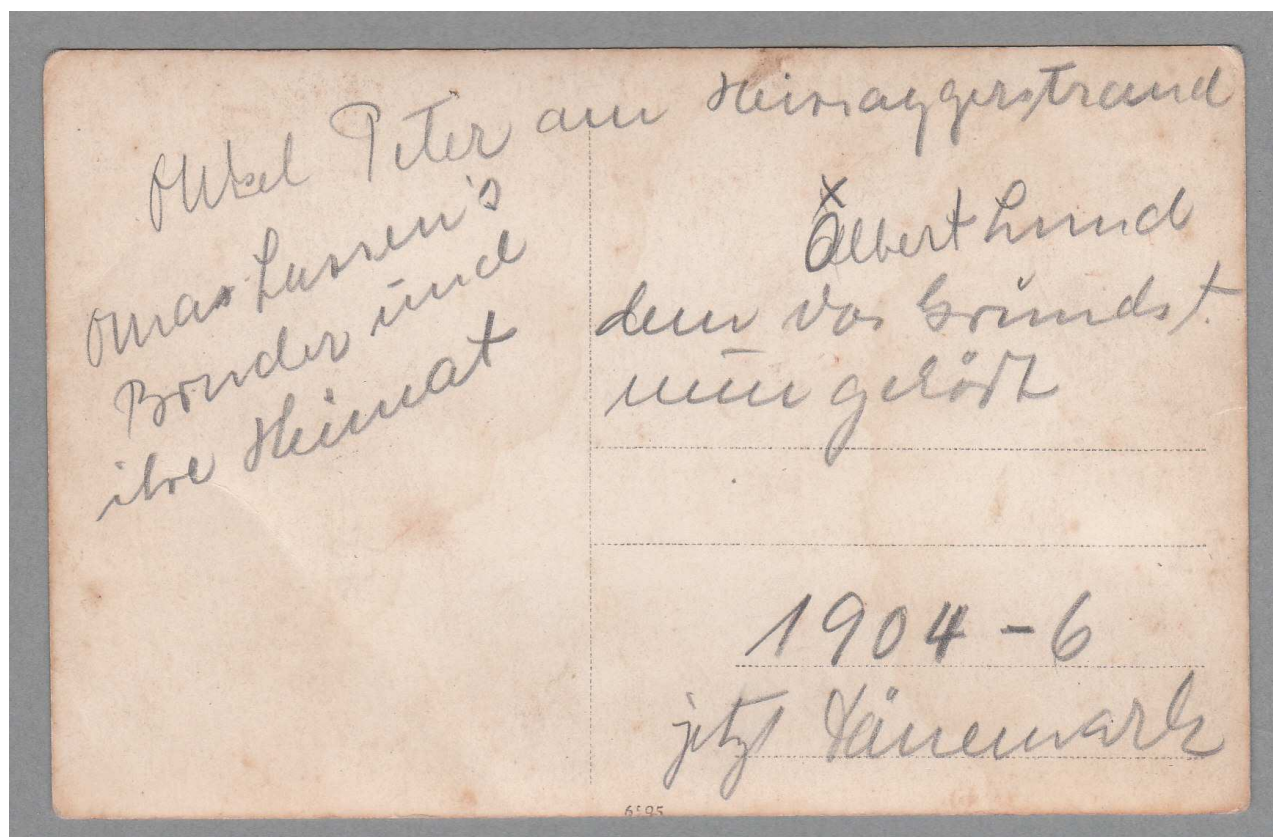 Onkel Peter am Heisaggerstrand
Omas Lassen's
Bruder und
ihre Heimat
x
Albert Lund
dem das Grundst.
nun gehört
1904-6
jetzt Dänemark
6595